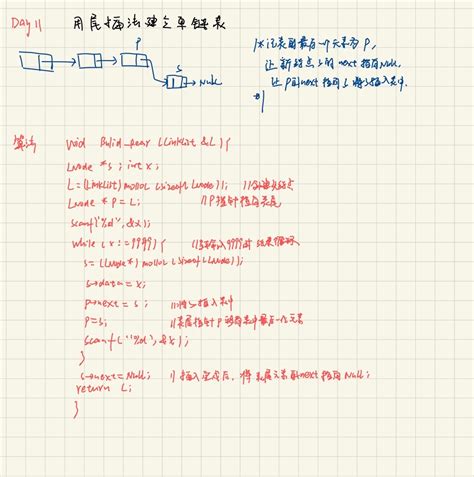 Day 11 用尾插法建立单链表
P
S
Null
/*记表的最后一个元素为P,
让新结点s的next指向Null,
让P的next指向s将s插入表中.
*/
算法 void Build_rear (Linklist &L){
Lnode *s ; int x;
L=(Linklist) malloc (sizeof(Lnode)); //创建头结点
Lnode * P = L; //P指针指向表尾
scanf("%d",&x);
while (x!=9999){ //当输入9999时结束循环
s=(Lnode*) malloc (sizeof(Lnode));
s→data = x;
p→next = s ; //将s插入表中
P=s; //表尾指针P
scanf("%d",&x);
}
s→next = Null; //插入完成后,将表尾元素的next指向Null;
return L;
}